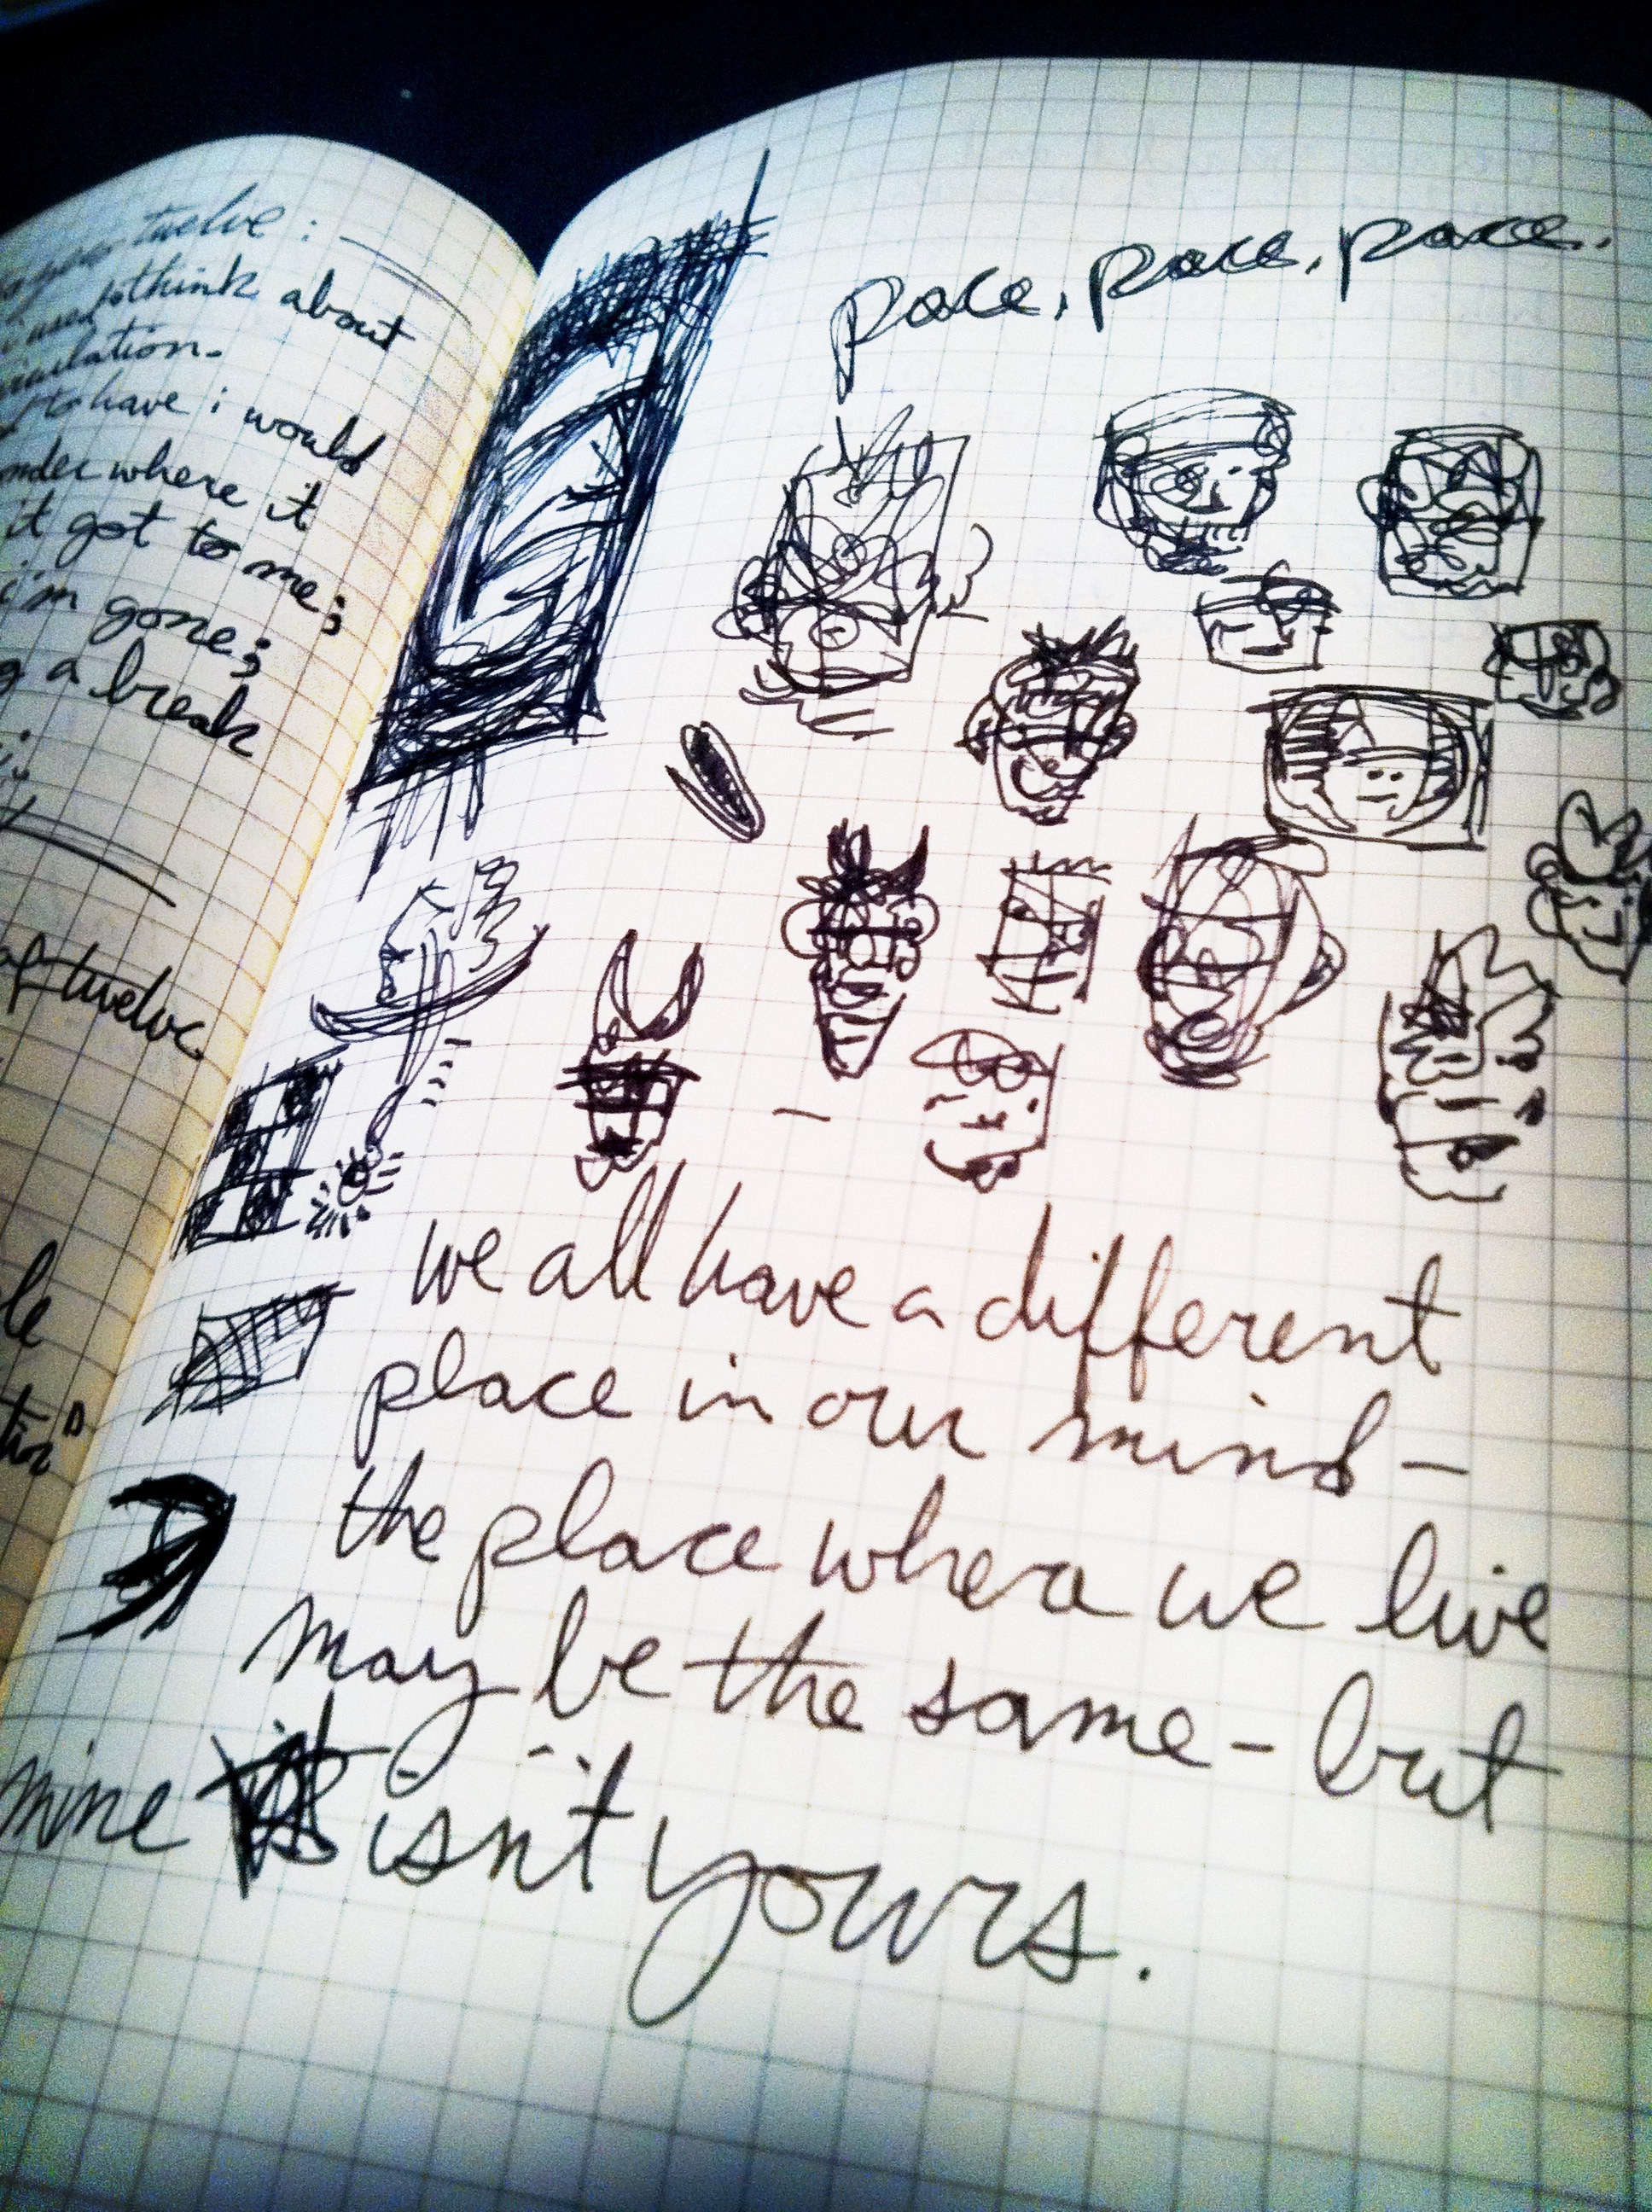 twelve :
think about
to have i would
where it
it got to me;
i'm gone;
a break
twelve
pace, pace, pace.
we all have a different
place in our mind —
the place where we live
may be the same — but
mine isn't yours.